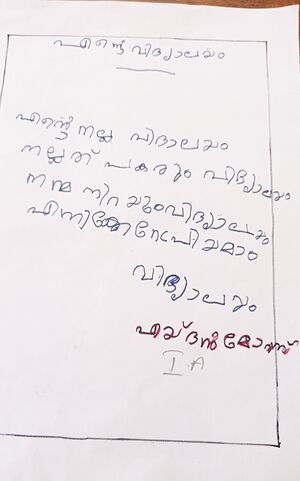 എന്റെ വിദ്യാലയം
എന്റെ നല്ല വിദാലയം
നല്ലത് പകരും വിദ്യാലയം
നന്മ നിറയുംവിദ്യാലയം
എന്നിക്കേറേപ്രിയമാം
വിദ്യാലയം
എയ്ദൻ ജോസ്
I A